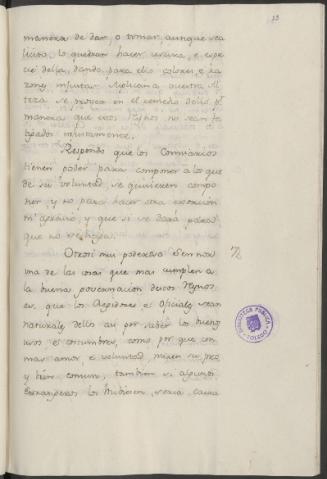 13
manera de dar, o tomar, aunque sea
licito, lo quedran hacer usura, e espe
cie della, dando para ello colores, e ra
zones injustas. Suplicamos a vuestra Al
teza se provea en el remedio dello pr.
manera que esos Reynos no sean fa
tigados injustamente.
Respondo que los Comisarios
tienen poder para componer a los que
de su voluntad se quisieren compo
ner, y no para hacer otra
ni apremio, y que si se dará
que no se haga.
Otrosi mui poderoso Señor
una de las cosas que mas cumplen a
la buena governacion destos Reynos
es, que los Regidores, e Oficiales sean
naturales dellos asi por saber los buenos
usos e costumbres, como por que con
mas amor e voluntad miren su pro
y bien comun, tambien si algunos
Extrangeros los hubiesen, seria causa
BIBLIOTECA PUBLICA
TOLEDO